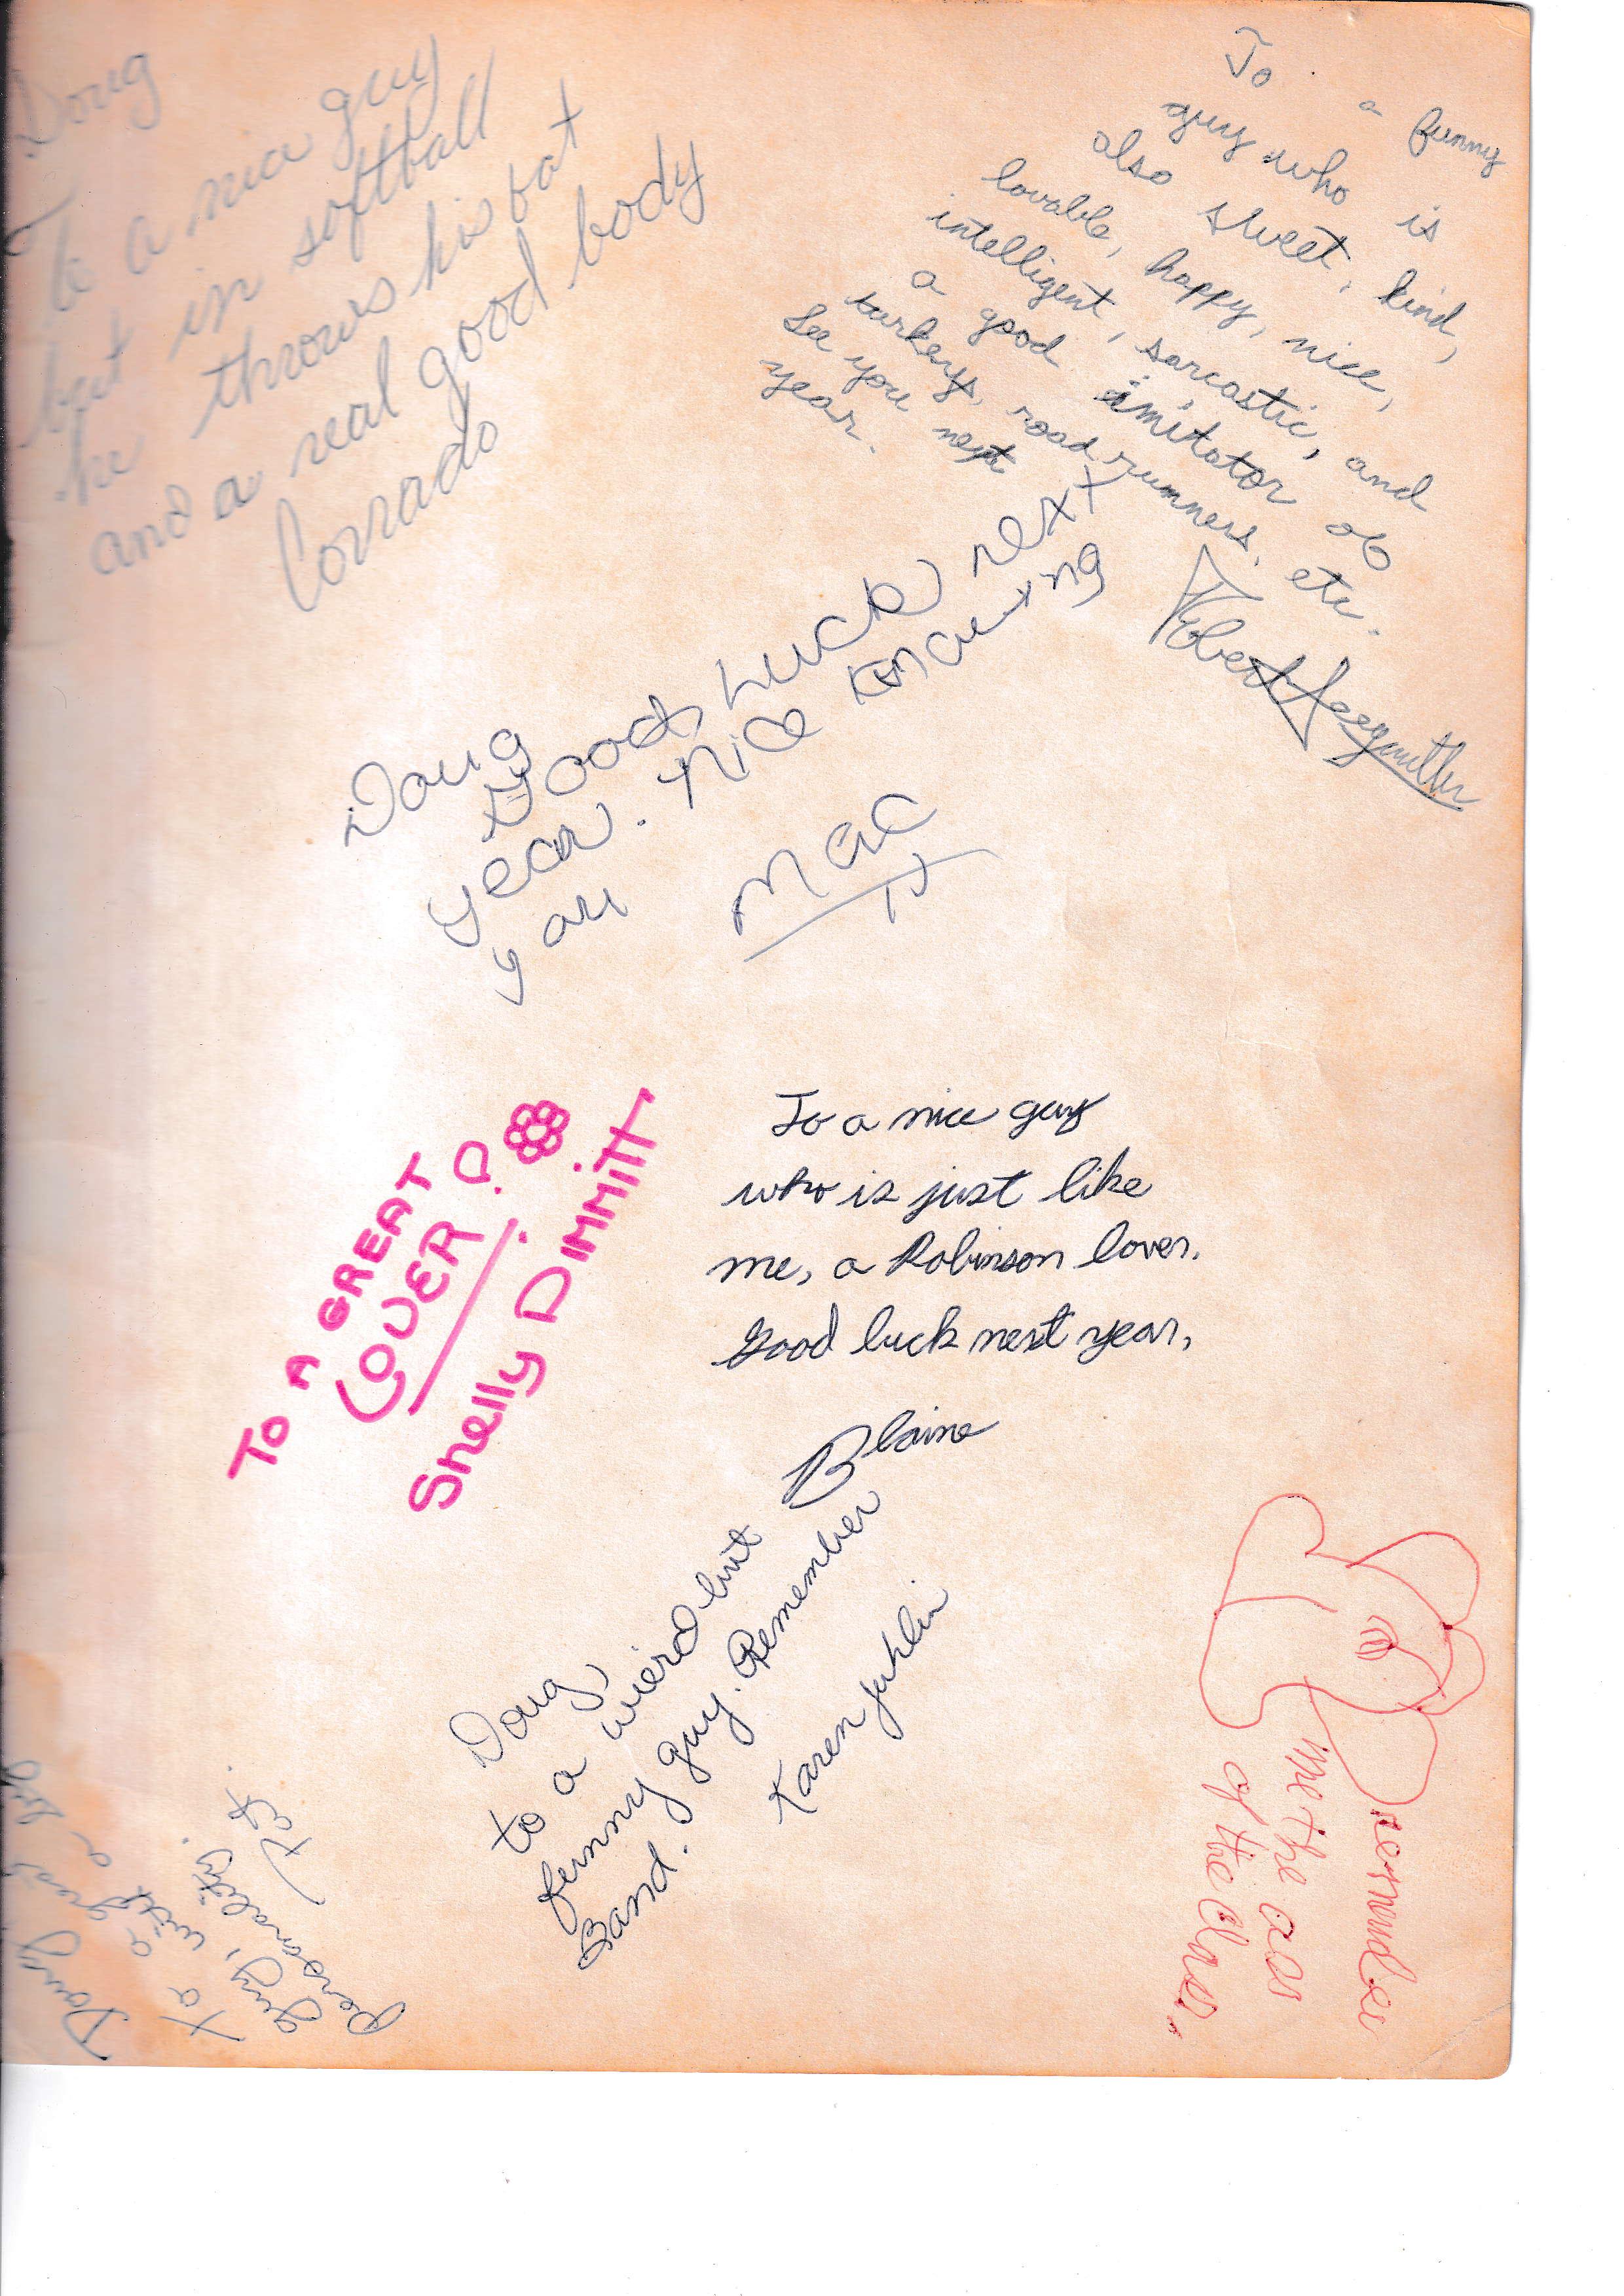 Doug
To a nice guy
but in softball
he throws his bat
and a real good body
Corrado
To a funny
guy who is
also sweet, kind,
lovable, happy, nice,
intelligent, sarcastic, and
a good imitator of
turkeys, roadrunners, etc.
See you next
year.
Robert
Doug
Good Luck next
year. Nice knowing
you
Mac
TO A GREAT
LOVER!
Shelly DIMMITT
To a nice guy
who is just like
me, a Robinson lover.
Good luck next year,
Blaine
Doug
to a wierd but
funny guy. Remember
Band.
Karen Juhlin
remember
me the ass
of the class.
Doug
to a great
guy, with a
Personality.